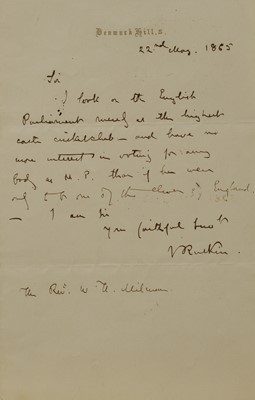 Denmark Hill, S.
22nd May, 1865
Sir
I look on the English
Parliament merely as the highest
caste cricket club – and have no
more interest in voting for any
body as M.P. than if he were
only to be one of the eleven of England.
– I am Sir
Your faithful Servt
J Ruskin
The Revd. W H. Milman.